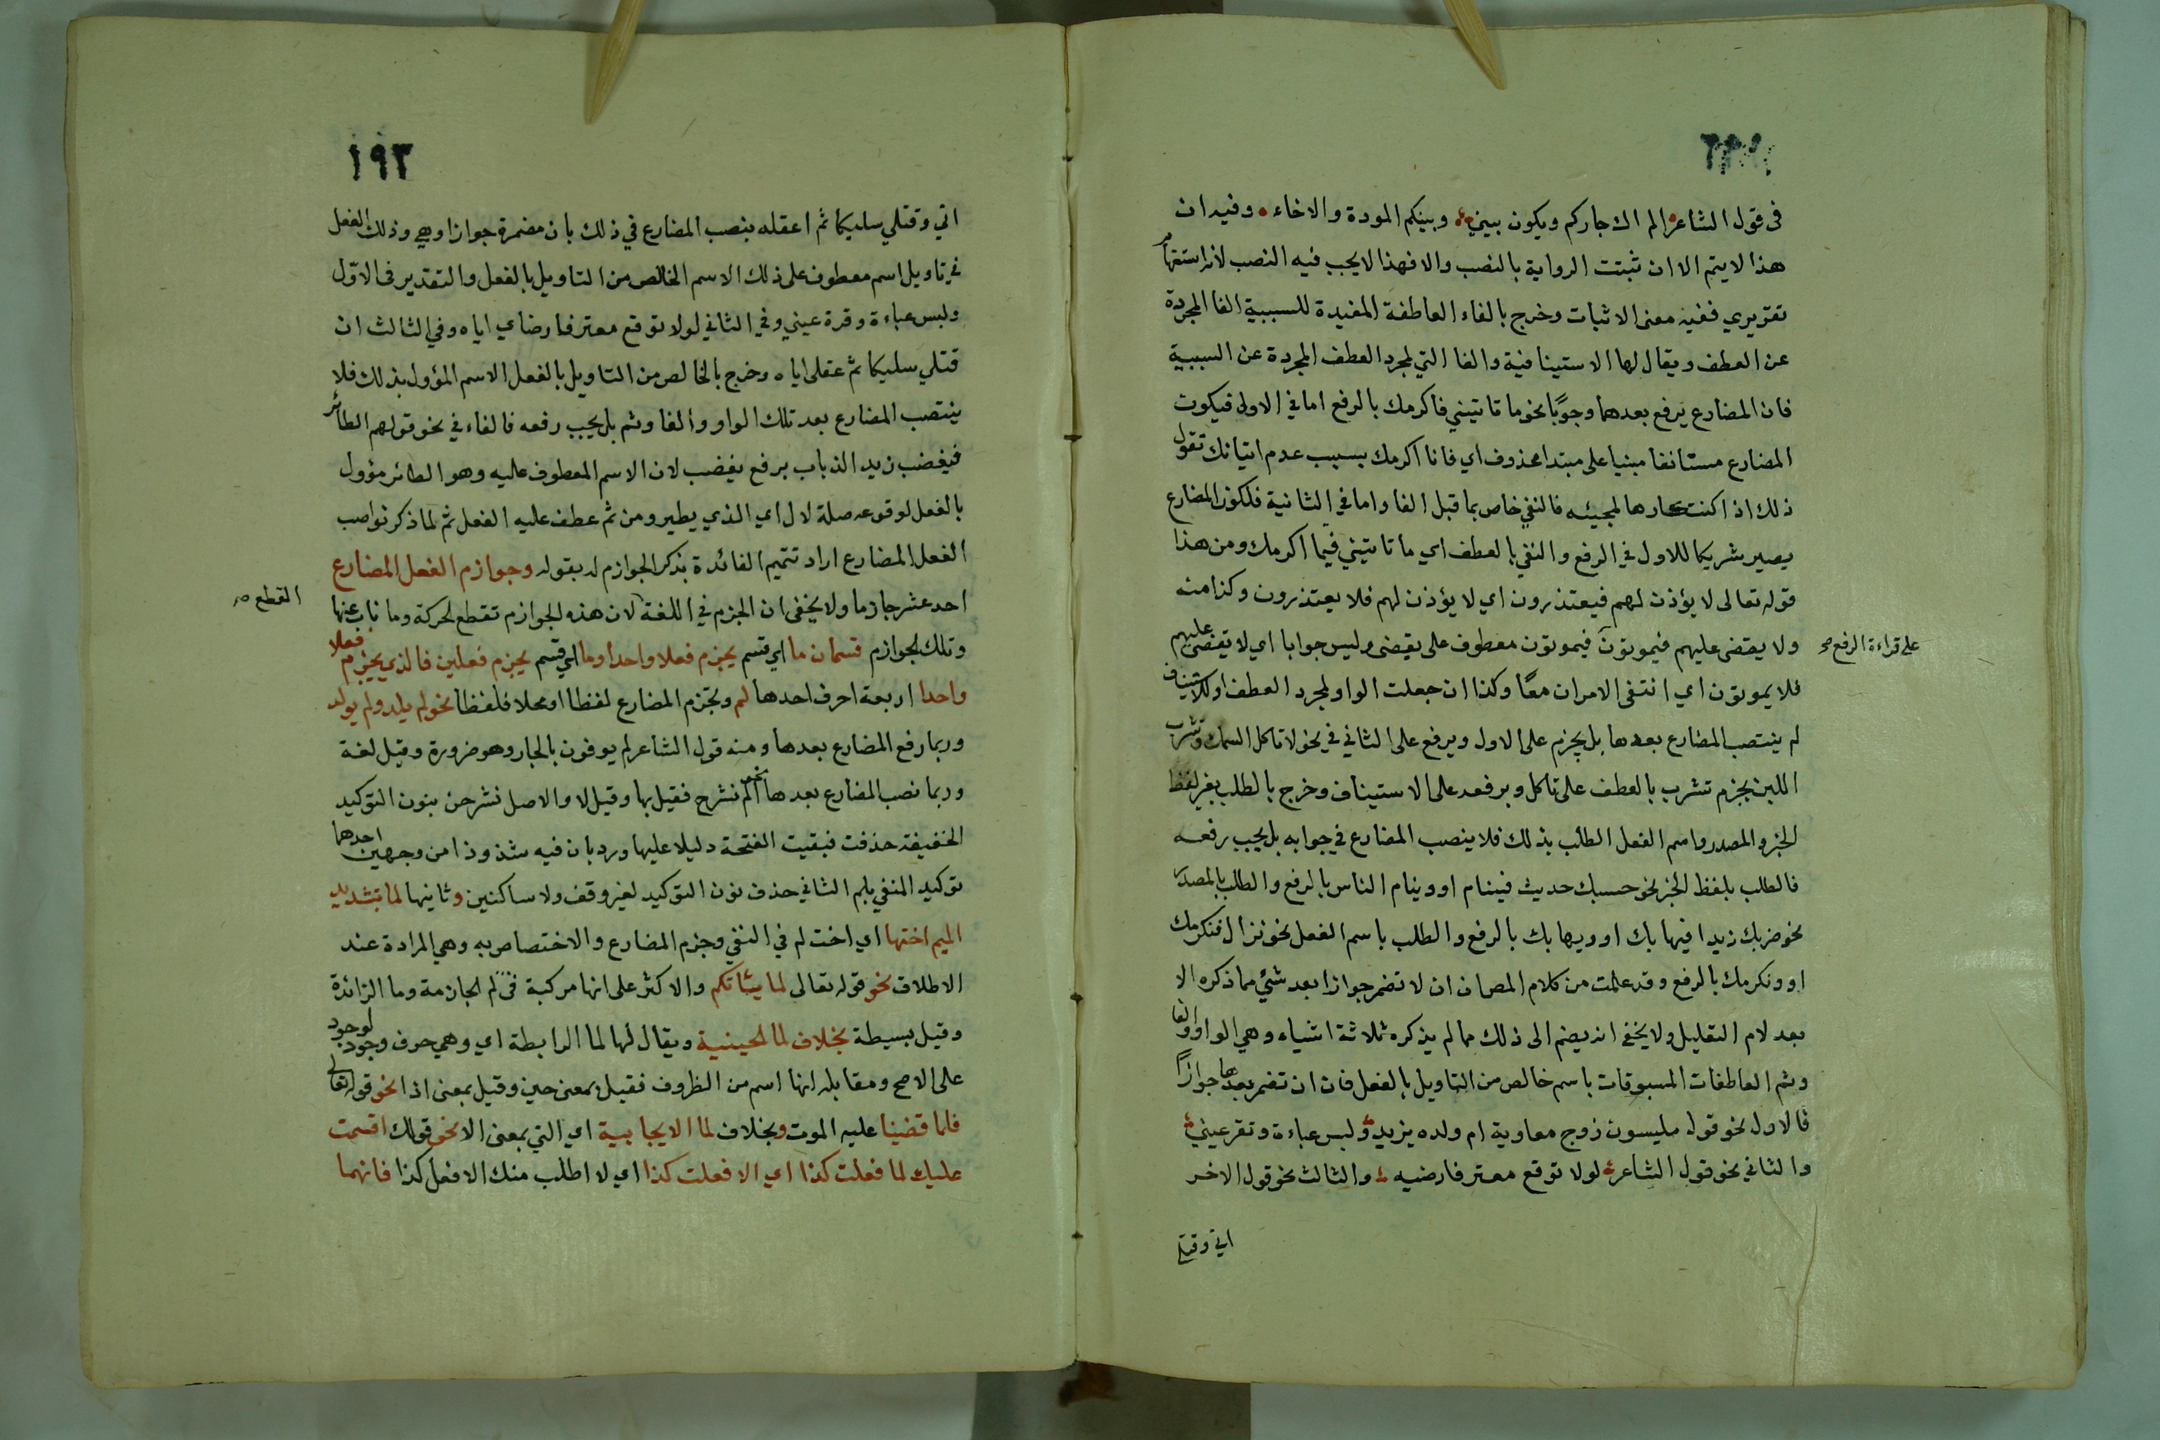 في قول الشاعر الم اك جاركم ويكون بيني وبينكم المودة والاخاء وفيه ان
هذا لا يتم الا ان ثبتت الرواية بالنصب والا فهذا لا يجب فيه النصب لانه استفهام
تقريري ففيه معنى الاثبات وخرج بالفاء العاطفة المفيدة للسببية الفا المجردة
عن العطف ويقال لها الاستينافية والفا التي لمجرد العطف المجردة عن السببية
فان المضارع يرفع بعدهما وجوبا نحو ما تاتيني فاكرمك بالرفع اما في الاولى فيكون
المضارع مستانفا مبنيا على مبتدا محذوف اي فانا اكرمك بسبب عدم اتيانك تقول
ذلك اذا كنت كارها لمجيئه فالنفي خاص بما قبل الفا واما في الثانية فلكون المضارع
يصير شريكا للاول في الرفع والنفي بالعطف اي ما تاتيني فما اكرمك ومن هذا
قوله تعالى لا يؤذن لهم فيعتذرون اي لا يؤذن لهم فلا يعتذرون وكذا منه
ولا يقضى عليهم فيموتون فيموتون معطوف على يقضى وليس جوابا اي لا يقضى عليهم
على قراءة الرفع صح
فلا يموتون اي انتفى الامران معا وكذا ان جعلت الواو لمجرد العطف او للاستيناف
لم ينتصب المضارع بعدها بل يجزم على الاول ويرفع على الثاني في نحو لا تاكل السمك وتشرب
اللبن بجزم تشرب بالعطف على تاكل وبرفعه على الاستيناف وخرج بالطلب بغير لفظ
الخبر والمصدر واسم الفعل الطلب بذلك فلا ينصب المضارع في جوابه بل يجب رفعه
فالطلب بلفظ الخبر نحو حسبك حديث فينام او وينام الناس بالرفع والطلب بالمصدر
نحو ضربك زيدا فيهابك او ويهابك بالرفع والطلب باسم الفعل نحو نزال فنكرمك
او ونكرمك بالرفع وقد علمت من كلام المص ان ان لا تضمر جوازا بعد شئ مما ذكره الا
بعد لام التعليل ولا يخفى انه يضم الى ذلك مما لم يذكره ثلاثة اشياء وهي الواو والفا
وثم العاطفات المسبوقات باسم خالص من التاويل بالفعل فان ان تضمر بعدها جوازا
فالاول نحو قول ميسون زوج معاوية ام ولده يزيد ولبس عباءة وتقر عيني
والثاني نحو قول الشاعر لولا توقع معتر فارضيه والثالث نحو قول الاخر
اني وقتلي
١٩٣
اني وقتلي سليكا ثم اعقله بنصب المضارع في ذلك بان مضمرة جوازا وهي وذلك الفعل
في تاويل اسم معطوف على ذلك الاسم الخالص من التاويل بالفعل والتقدير في الاول
ولبس عباءة وقرة عيني وفي الثاني لولا توقع معتر فارضاي اياه وفي الثالث ان
قتلي سليكا ثم عقلي اياه وخرج بالخالص من التاويل بالفعل الاسم المؤول بذلك فلا
ينتصب المضارع بعد تلك الواو والفا وثم بل يجب رفعه فالفاء في نحو قولهم الطائر
فيغضب زيد الذباب برفع يغضب لان الاسم المعطوف عليه وهو الطائر مؤول
بالفعل لوقوعه صلة لال اي الذي يطير ومن ثم عطف عليه الفعل ثم لما ذكر نواصب
الفعل المضارع اراد تتميم الفائدة بذكر الجوازم له بقوله وجوازم الفعل المضارع
احد عشر جازما ولا يخفى ان الجزم في اللغة لان هذه الجوازم تقطع الحركة وما ناب عنها
القطع ص
وتلك الجوازم قسمان ما اي قسم يجزم فعلا واحدا وما اي قسم يجزم فعلين فالذي يجزم فعلا
واحدا اربعة احرف احدها لم وتجزم المضارع لفظا او محلا فلفظا نحو لم يلد ولم يولد
وربما رفع المضارع بعدها ومنه قول الشاعر لم يوفون بالجار وهو ضرورة وقيل لغة
وربما نصب المضارع بعدها نحو الم نشرح فقيل بها وقيل لا والاصل نشرحن بنون التوكيد
الخفيفة حذفت فبقيت الفتحة دليلا عليها ورد بان فيه شذوذا من وجهين احدهما
توكيد المنفي بلم الثاني حذف نون التوكيد لغير وقف ولا ساكنين وثانيها لما بتشديد
الميم اختها اي اخت لم في النفي وجزم المضارع والاختصاص به وهي المرادة عند
الاطلاق نحو قوله تعالى لما ياتكم والاكثر على انها مركبة من لم الجازمة وما الزائدة
وقيل بسيطة بخلاف لما الحينية ويقال لها لما الرابطة اي وهي حرف وجود لوجود
على الاصح ومقابله انها اسم من الظروف فقيل بمعنى حين وقيل بمعنى اذا نحو قوله تعالى
فلما قضينا عليه الموت وبخلاف لما الايجابية اي التي بمعنى الا نحو قولك اقسمت
عليك لما فعلت كذا اي الا فعلت كذا اي لا اطلب منك الا فعل كذا فانهما